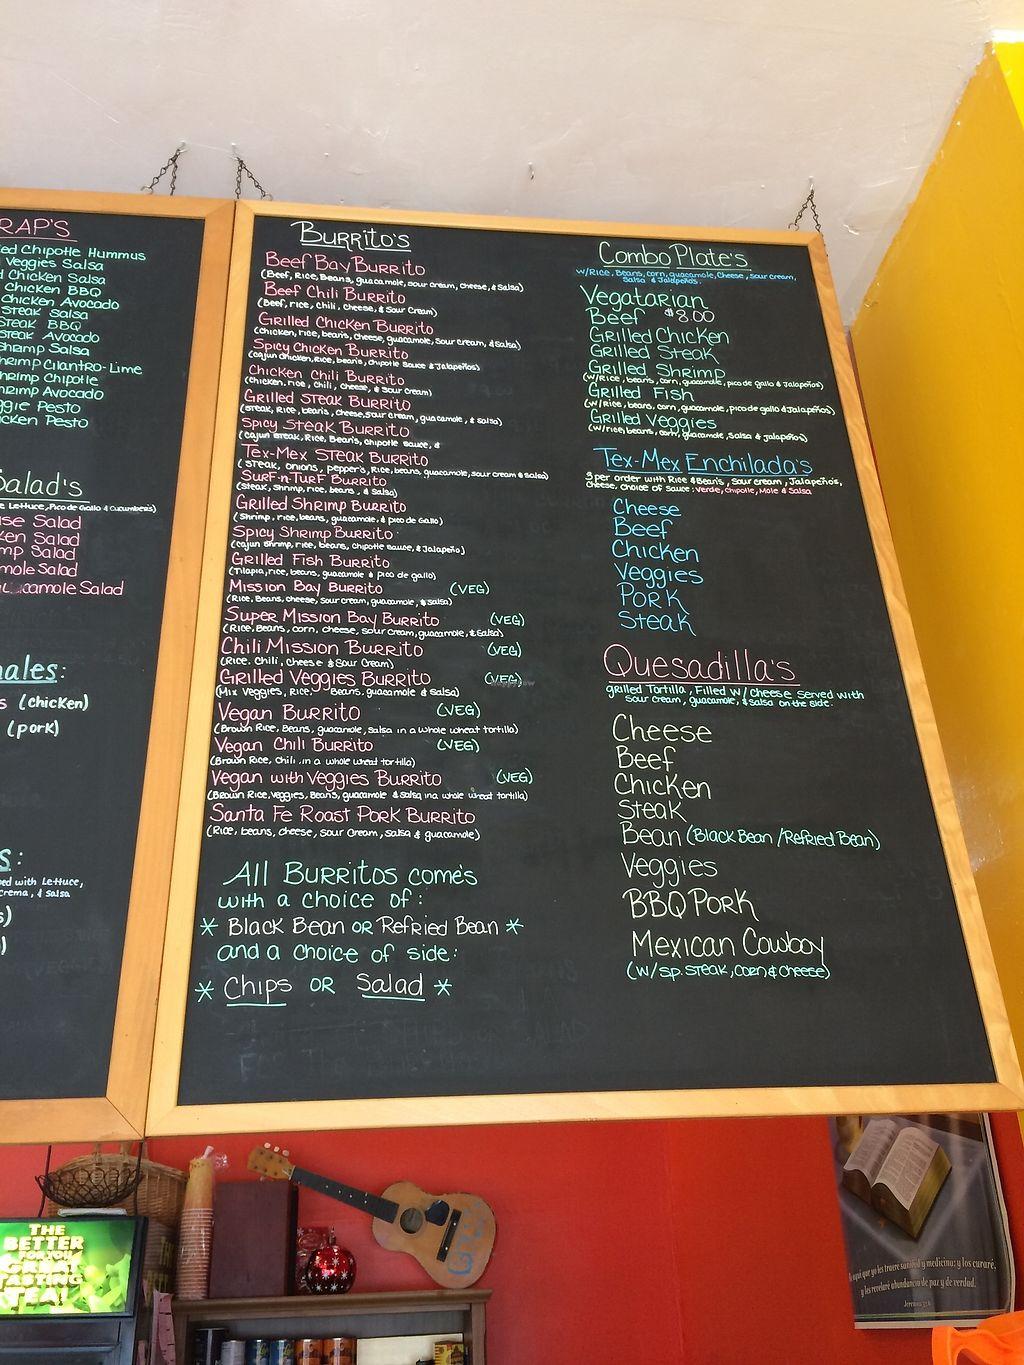 RAP'S
ed Chipotle Hummus
Veggies Salsa
d Chicken Salsa
Chicken BBQ
Chicken Avocado
Steak Salsa
Steak BBQ
Steak Avocado
hrimp Salsa
hrimp Cilantro-Lime
hrimp Chipotle
hrimp Avocado
ggie Pesto
icken Pesto
Salad's
e Lettuce, Pico de Gallo & Cucumbers)
use Salad
ken Salad
mp Salad
mole Salad
uacamole Salad
nales:
s (chicken)
(pork)
s:
ped with Lettuce,
crema, & Salsa
s)
)
Burrito's
Beef Bay Burrito
(Beef, Rice, Beans, guacamole, sour cream, cheese, & Salsa)
Beef Chili Burrito
(Beef, rice, chili, cheese, & sour Cream)
Grilled Chicken Burrito
(chicken, rice, beans, cheese, guacamole, sour cream, & salsa)
Spicy Chicken Burrito
(cajun chicken, Rice, beans, chipotle sauce & Jalapeños)
Chicken Chili Burrito
(chicken, rice, chili, cheese, & sour Cream)
Grilled Steak Burrito
(steak, Rice, beans, cheese, sour cream, guacamole, & salsa)
Spicy Steak Burrito
(cajun steak, Rice, Beans, chipotle sauce, &
Tex-Mex Steak Burrito
(steak, onions, pepper's, Rice, beans, guacamole, sour cream & salsa)
Surf-n-Turf Burrito
(Steak, Shrimp, rice, beans, & Salsa)
Grilled Shrimp Burrito
(Shrimp, rice, beans, guacamole & pico de Gallo)
Spicy Shrimp Burrito
(cajun shrimp, rice, beans, chipotle sauce, & Jalapeño)
Grilled Fish Burrito
(Tilapia, rice, beans, guacamole & pico de gallo)
Mission Bay Burrito (VEG)
(Rice, Beans, cheese, sour cream, guacamole, & salsa)
Super Mission Bay Burrito (VEG)
(Rice, Beans, corn, cheese, sour cream, guacamole, & Salsa)
Chili Mission Burrito (VEG)
(Rice, Chili, cheese & Sour Cream)
Grilled Veggies Burrito (VEG)
(Mix Veggies, Rice, Beans, guacamole & salsa)
Vegan Burrito (VEG)
(Brown Rice, Beans, guacamole, salsa in a whole wheat tortilla)
Vegan Chili Burrito (VEG)
(Brown Rice, chili in a whole wheat tortilla)
Vegan with Veggies Burrito (VEG)
(Brown Rice, veggies, Beans, guacamole & salsa in a whole wheat tortilla)
Santa Fe Roast Pork Burrito
(Rice, beans, cheese, sour Cream, salsa & guacamole)
All Burritos come's
with a choice of:
* Black Bean or Refried Bean *
and a choice of side:
* Chips or Salad *
Combo Plate's
w/Rice, Beans, corn, guacamole, cheese, sour cream,
Salsa & Jalapeños.
Vegatarian
Beef $8.00
Grilled Chicken
Grilled Steak
Grilled Shrimp
(w/Rice, beans, corn, guacamole, pico de gallo & Jalapeños)
Grilled Fish
(w/Rice, beans, corn, guacamole, pico de gallo & Jalapeños)
Grilled Veggies
(w/rice, beans, corn, guacamole, salsa & jalapeños)
Tex-Mex Enchilada's
3 per order with Rice & Beans, sour cream, Jalapeño's,
cheese, choice of sauce: Verde, chipotle, Mole & Salsa
Cheese
Beef
Chicken
Veggies
Pork
Steak
Quesadilla's
grilled Tortilla, Filled w/cheese served with
sour cream, guacamole, & salsa on the side.
Cheese
Beef
Chicken
Steak
Bean (Black Bean /Refried Bean)
Veggies
BBQ Pork
Mexican Cowboy
(w/sp. steak, corn & cheese)
THE
BETTER
FOR YOU
GREAT
TASTING
TEA!
aquí que yo les traere sanidad y medicina: y los curaré,
y les revelaré abundancia de paz y de verdad.
Jeremías 33:6